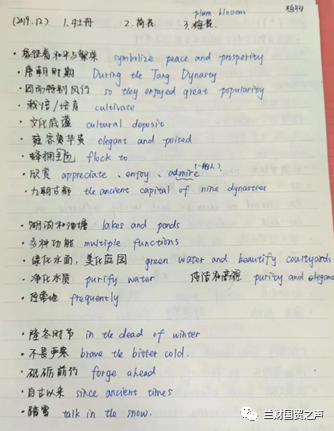 plum blossom
(2019.12) 1.牡丹 2.荷花 3.梅花
• 象征着和平与繁荣 symbolize peace and prosperity
• 唐朝时期 During the Tang Dynasty
• 因而特别风行 so they enjoyed great popularity
• 栽培/培育 cultivate
• 文化底蕴 cultural deposit
• 雍容华贵 elegant and poised
• 蜂拥 flock to
• 欣赏 appreciate. enjoy. admire (人)
• 九朝古都 the ancient capital of nine dynasties
• 湖泊和池塘 lakes and ponds
• 多种功能 multiple functions
• 绿化水面,美化庭园 green water and beautify courtyards
• 净化水质 purify water 纯洁和高雅 purity and elegance
• 经常地 frequently
• 隆冬时节 in the dead of winter
• 不畏严寒 brave the bitter cold.
• 砥砺前行 forge ahead
• 自古以来 since ancient times
• 踏雪 talk in the snow.
兰财国贸之声